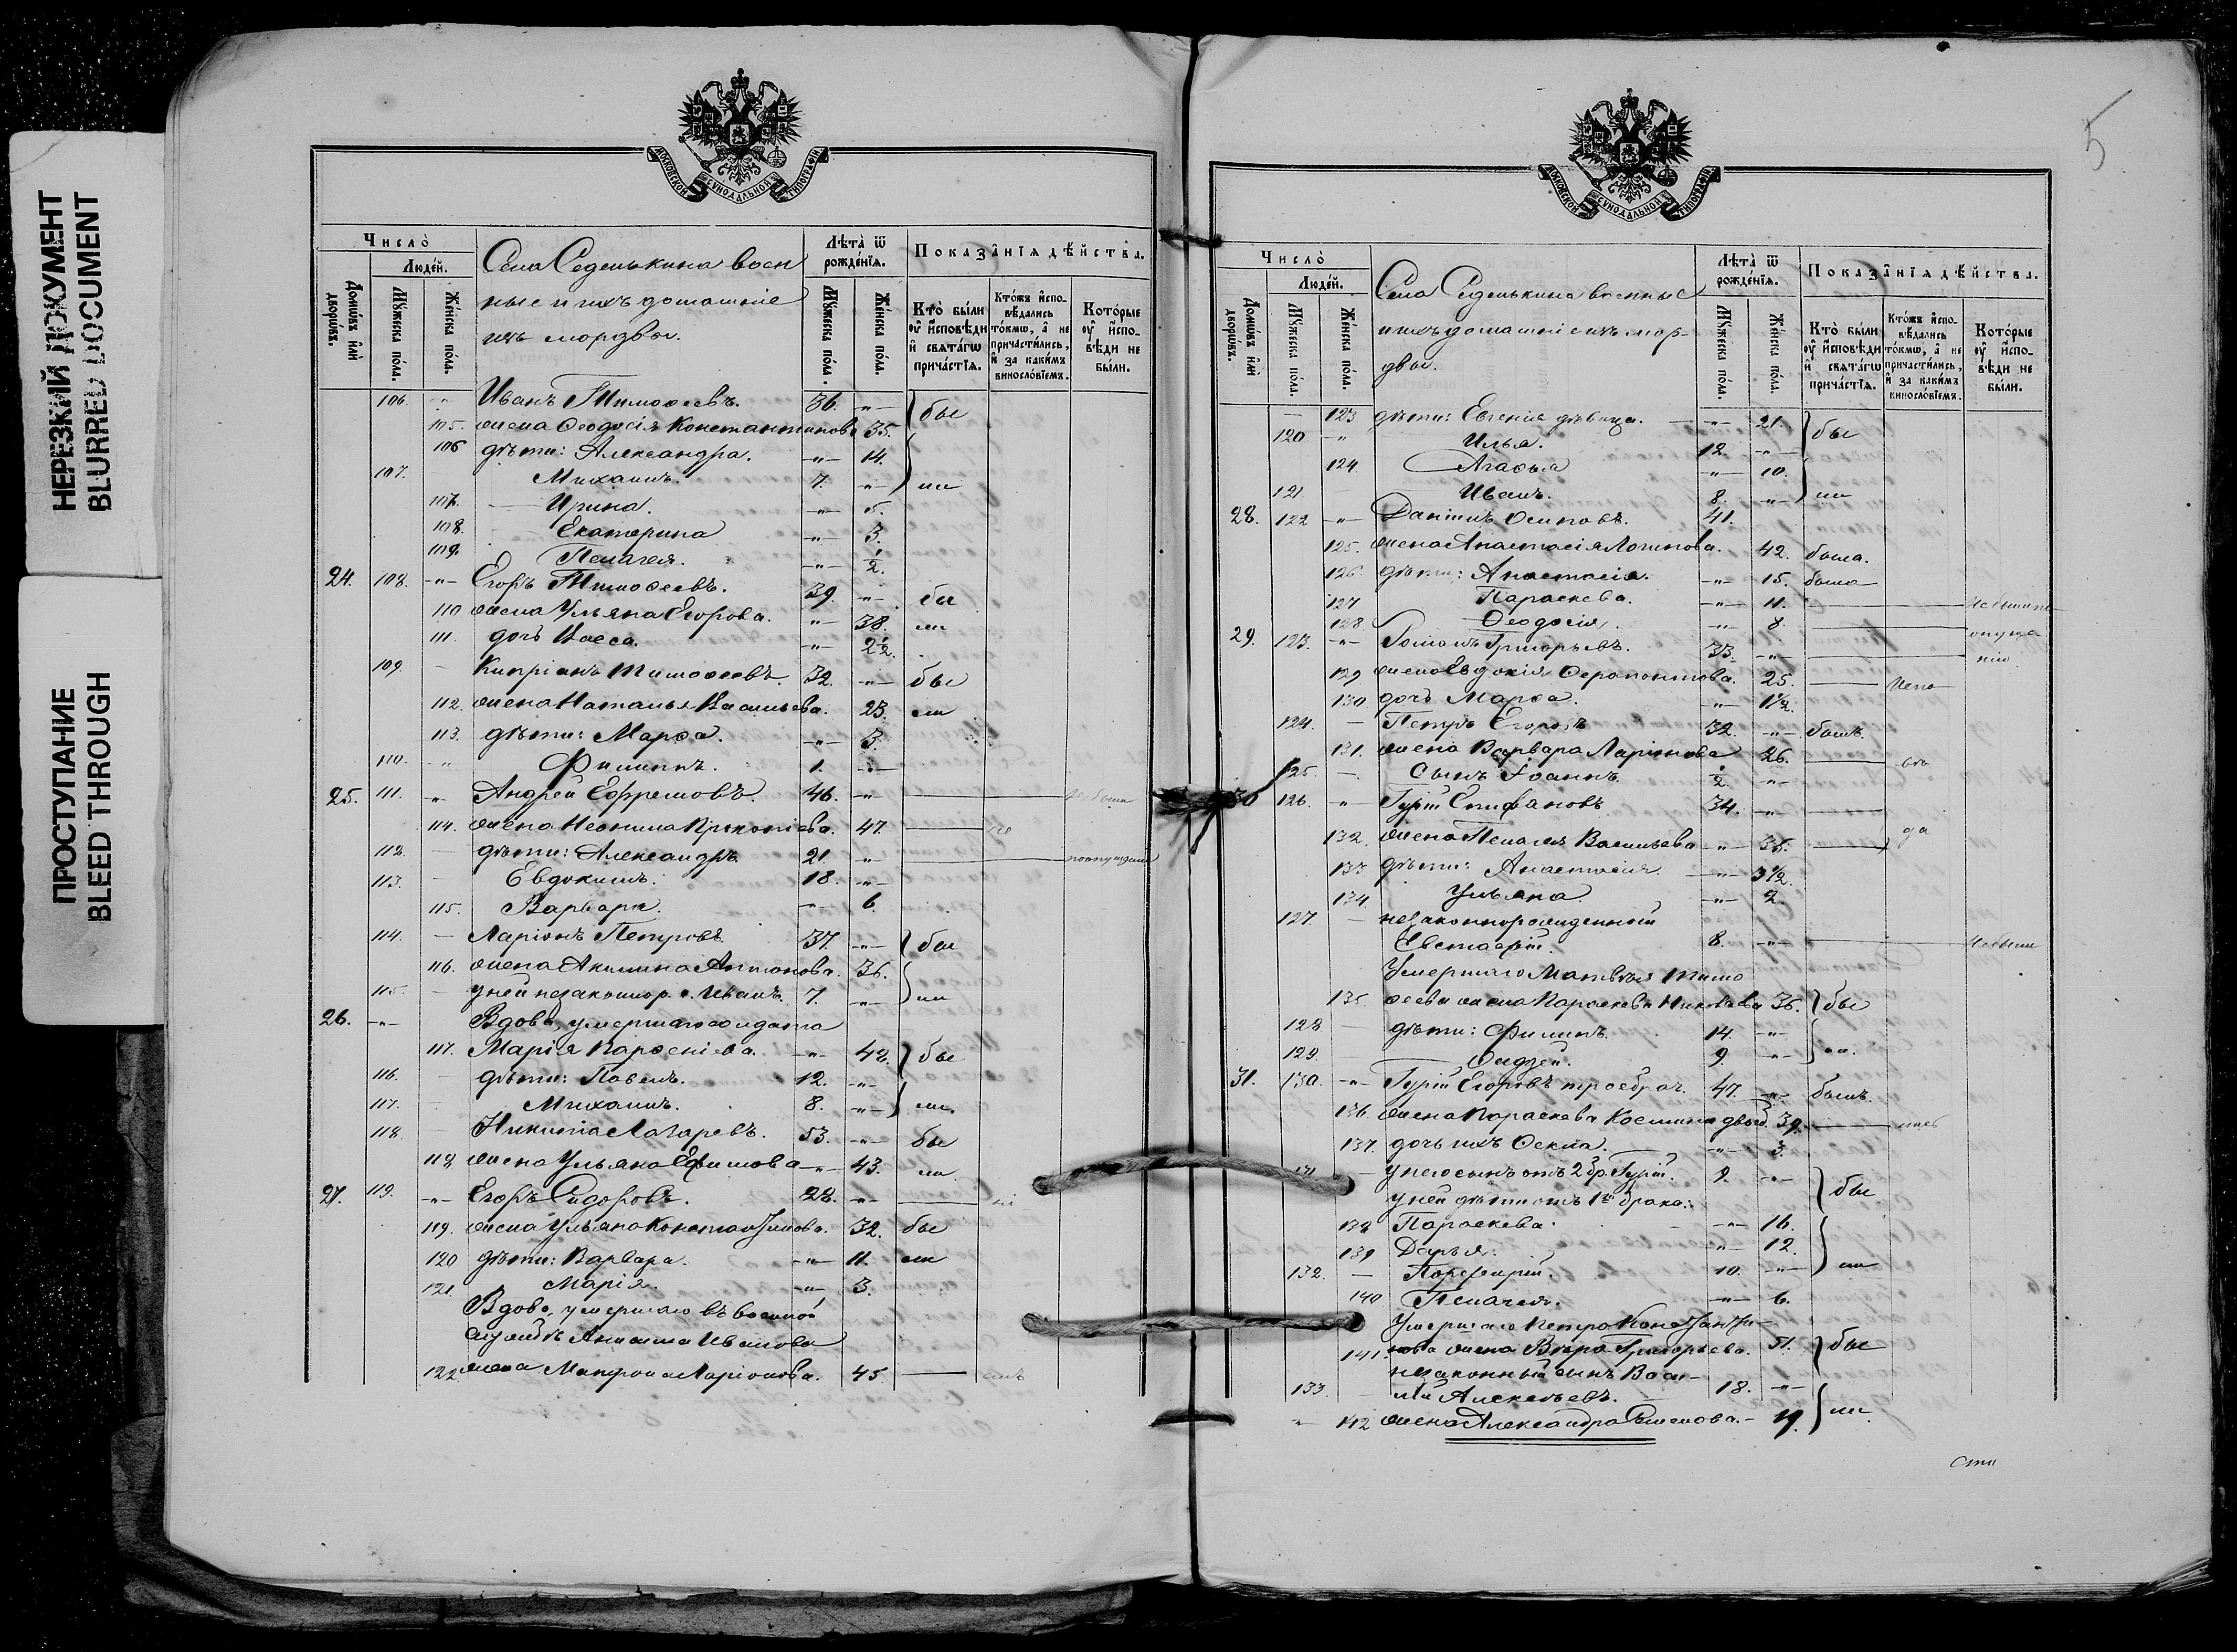 НЕРЕЗКИЙ ДОКУМЕНТ
BLURRED DOCUMENT
ПРОСТУПАНИЕ
BLEED THROUGH
МОСКОВСКОЙ СѴНОДАЛЬНОЙ ТИПОГРАФІИ
Число̀
Люде́й.
Домѡ́въ и҆лѝ дворѡ́въ.
Мꙋ́жеска по́ла.
Же́нска по́ла.
Села Седенькина воен
ные и ихъ домашніе
изъ мордвы.
Лѣ́та ѿ рожде́нїѧ.
Мꙋ́жеска по́ла.
Же́нска по́ла.
Показа̂нїѧ дѣ́йства.
Кто̀ бы́ли ᲂу҆ и҆́сповѣди и҆ свѧта́гѡ причⷭ҇тїѧ.
Кто́жъ и҆спо-вѣ́дались то́кмѡ, а҆ не причасти́лись, и҆ за каки́мъ винословїемъ.
Кото́рые ᲂу҆ и҆спо-вѣди не бы́ли.
106. -"- Иванъ Тимоѳеевъ. 36. -"- бы
105. жена Ѳеодосія Константинова 35.
106 дѣти: Александра. -"- 14.
107. Михаилъ. 7. -"- ли
107. Ирина. -"- 5.
108. Екатерина -"- 3.
109. Пелагея. -"- 1/2.
24. 108. -"- Егоръ Тимоѳеевъ. 39. -"- бы
110 жена Ульяна Егорова. -"- 38. ли
111. дочь Васса. -"- 2 1/2.
109. - Кипріанъ Тимоѳеевъ. 32. -"- бы
112. жена Наталья Васильева. 23. ли
113. дѣти: Марѳа. -"- 3.
110. -"- Филиппъ. 1. -"-
25. 111. -"- Андрей Ефремовъ. 46. -"- не были
114. жена Неонила Прокопіева. 47. не
112. - дѣти: Александръ 21. -"- по опущенію
113. - Евдокимъ. 18. -"-
115. Варвара. -"- 6.
114. - Ларіонъ Петровъ 37. -"- бы
116. жена Акилина Антонова. 36.
115. - у ней незаконнор. с. Иванъ. 7. -"- ли
26. -"- Вдова, умершаго солдата
117. Марія Парѳеніева. -"- 42. бы
116. - дѣти: Павелъ. 12. -"-
117. - Михаилъ. 8. -"- ли
118. Никита Лазаревъ. 53. -"- бы
118. жена Ульяна Ефимова -"- 43. ли
27. 119. -"- Егоръ Сидоровъ. 28. -"-
119. жена Ульяна Константинова. 32. бы
120 дѣти: Варвара. -"- 11. ли
121. Марія. -"- 3.
Вдова, умершаго въ военной
службѣ Анисима Иванова
122. жена Матрона Ларіонова. 45.
5
МОСКОВСКОЙ СѴНОДАЛЬНОЙ ТИПОГРАФІИ
Число̀
Люде́й.
Домѡ́въ и҆лѝ дворѡ́въ.
Мꙋ́жеска по́ла.
Же́нска по́ла.
Села Седенькина военные
и ихъ домашніе изъ мор-
двы.
Лѣ́та ѿ рожде́нїѧ.
Мꙋ́жеска по́ла.
Же́нска по́ла.
Показа̂нїѧ дѣ́йства.
Кто̀ бы́ли ᲂу҆ и҆́сповѣди и҆ свѧта́гѡ причⷭ҇тїѧ.
Кто́жъ и҆спо-вѣ́дались то́кмѡ, а҆ не причасти́лись, и҆ за каки́мъ винословїемъ.
Кото́рые ᲂу҆ и҆спо-вѣди не бы́ли.
- 123 дѣти: Евгенія дѣвица. -"- 21. бы
120 -"- Илья. 12. -"-
124 Агаѳья -"- 10.
121. Иванъ. 8. -"- ли
28. 122 -"- Даніилъ Осиповъ. 41.
125. жена Анастасія Логинова. 42. была.
126. дѣти: Анастасія. -"- 15. была
127 Параскева. -"- 11. Не были по
128 Ѳеодосія. -"- 8. опуще
29. 123. -"- Романъ Григорьевъ. 33. -"- нію
129 жена Евдокія Серапонтова. 25. Непо
130 дочь Марѳа. -"- 1 1/2.
124. - Петръ Егоровъ 32. -"- былъ.
131. жена Варвара Ларіонова 26.
125. - сынъ Іоаннъ. 1/2. -"-
30 126. -"- Гурій Епифановъ 34. -"-
132. жена Пелагея Васильева -"- 35. да
133 дѣти: Анастасія -"- 3 1/2.
134. Ульяна. -"- 2.
127. - незаконнорожденный
Евстафій. 8. -"- Не были
Умершаго Матвѣя Тимо
135. ѳеева жена Параскева Никитіева 36. бы
128 - дѣти: Филиппъ. 14. -"-
129. - Андрей. 9. -"- ли.
31. 130. -"- Гурій Егоровъ троебрач. 47. -"- былъ.
136. жена Параскева Косьмина двоеб. 39.
137. дочь ихъ Ѳекла. -"- 3.
131 - у него сынъ отъ 2 бр. Гурій. 9. -"- бы
у ней дѣти отъ 1го брака:
138 Параскева. -"- 16.
139 Дарья. -"- 12.
132. - Порфирій. 10. -"- ли
140 Пелагея. -"- 6.
Умершаго Петра Константи-
141. нова жена Вѣра Григорьева. 51. бы
незаконный сынъ Васи-
133. лій Алексѣевъ. 18. -"-
-"- 142 жена Александра Семенова. 19. ли.